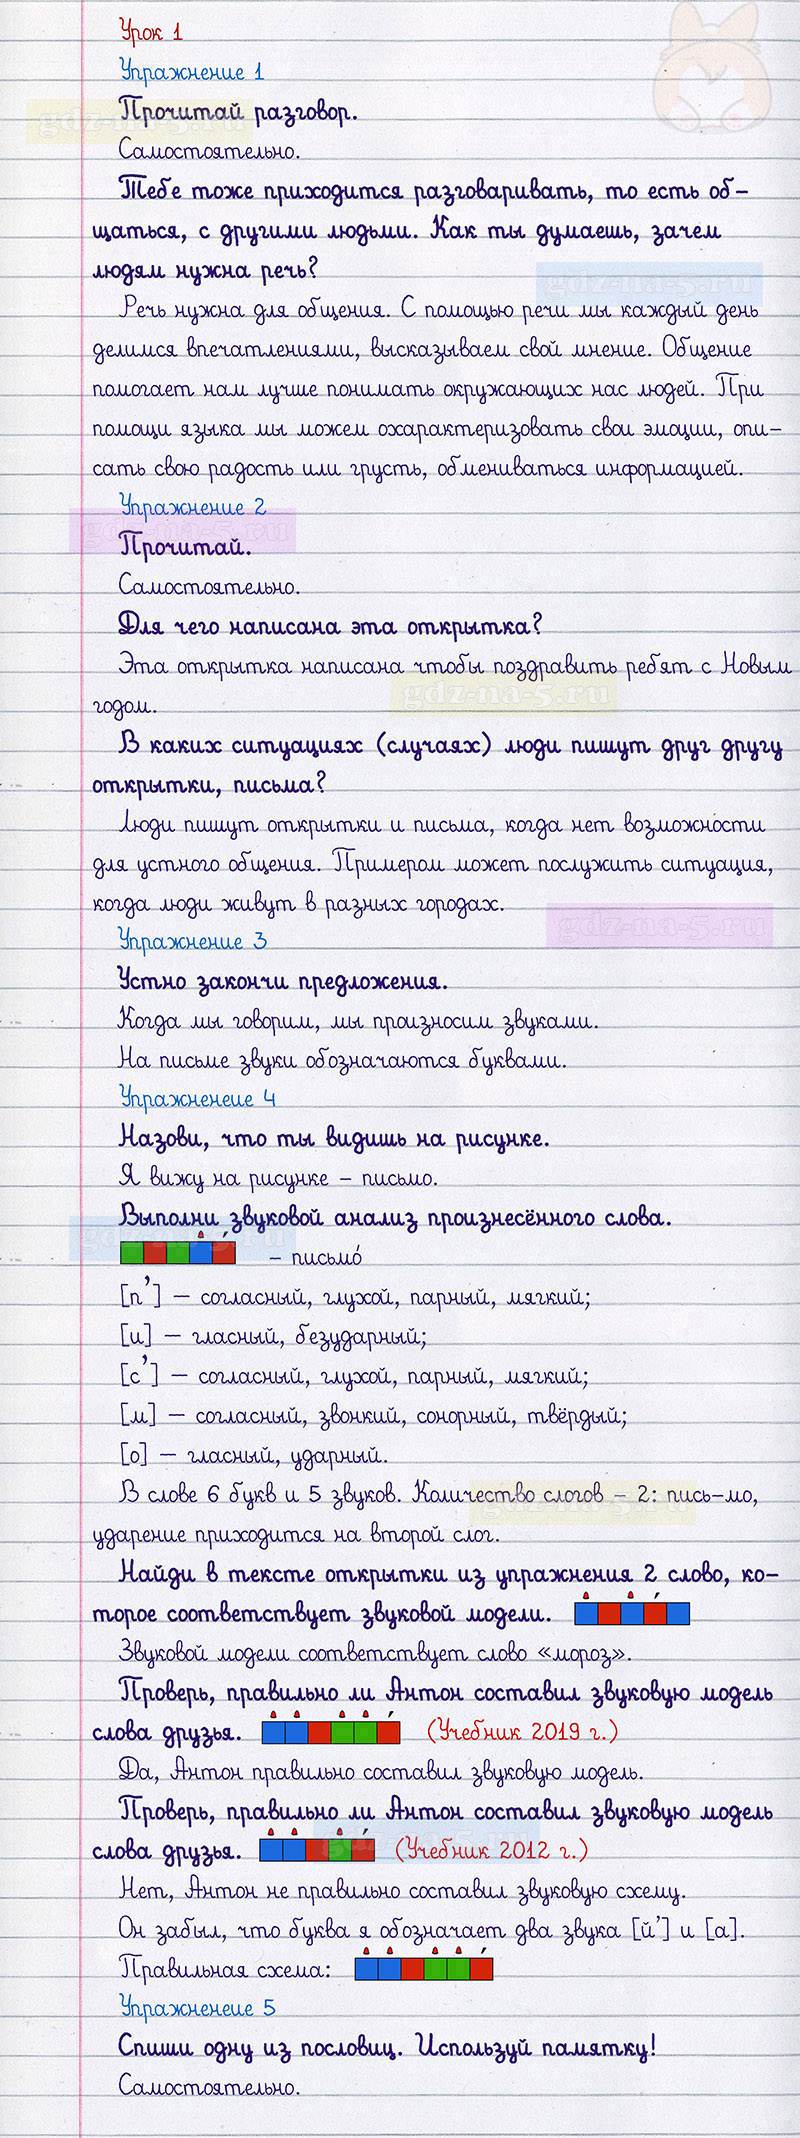 Урок 1
Упражнение 1
Прочитай разговор.
gdz-na-5.ru
Самостоятельно.
Тебе тоже приходится разговаривать, то есть об-
щаться, с другими людьми. Как ты думаешь, зачем
людям нужна речь?
gdz-na-5.ru
Речь нужна для общения. С помощью речи мы каждый день
делимся впечатлениями, высказываем свой мнение. Общение
помогает нам лучше понимать окружающих нас людей. При
помощи языка мы можем охарактеризовать свои эмоции, опи-
сать свою радость или грусть, обмениваться информацией.
Упражнение 2
gdz-na-5.ru
Прочитай.
Самостоятельно.
Для чего написана эта открытка?
Эта открытка написана чтобы поздравить ребят с Новым
gdz-na-5.ru
годом.
В каких ситуациях (случаях) люди пишут друг другу
открытки, письма?
Люди пишут открытки и письма, когда нет возможности
для устного общения. Примером может послужить ситуация,
когда люди живут в разных городах.
gdz-na-5.ru
Упражнение 3
Устно закончи предложения.
Когда мы говорим, мы произносим звуками.
На письме звуки обозначаются буквами.
Упражненеие 4
Назови, что ты видишь на рисунке.
Я вижу на рисунке – письмо.
Выполни звуковой анализ произнесённого слова.
gdz-na-5.ru
– письмо́
[п’] – согласный, глухой, парный, мягкий;
[и] – гласный, безударный;
[с’] – согласный, глухой, парный, мягкий;
[м] – согласный, звонкий, сонорный, твёрдый;
[о] – гласный, ударный.
В слове 6 букв и 5 звуков. Количество слогов – 2: пись-мо,
gdz-na-5.ru
ударение приходится на второй слог.
Найди в тексте открытки из упражнения 2 слово, ко-
торое соответствует звуковой модели.
Звуковой модели соответствует слово «мороз».
Проверь, правильно ли Антон составил звуковую модель
слова друзья. (Учебник 2019 г.)
Да, Антон правильно составил звуковую модель.
Проверь, правильно ли Антон составил звуковую модель
слова друзья. (Учебник 2012 г.)
gdz-na-5.ru
Нет, Антон не правильно составил звуковую схему.
Он забыл, что буква я обозначает два звука [й’] и [а].
Правильная схема:
Упражненеие 5
Спиши одну из пословиц. Используй памятку!
Самостоятельно.